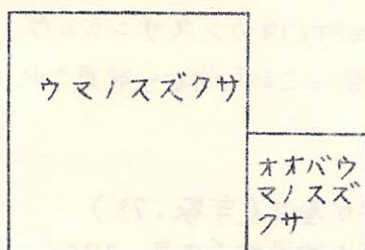 ウマノスズクサ
オオバウ
マノスズ
クサ